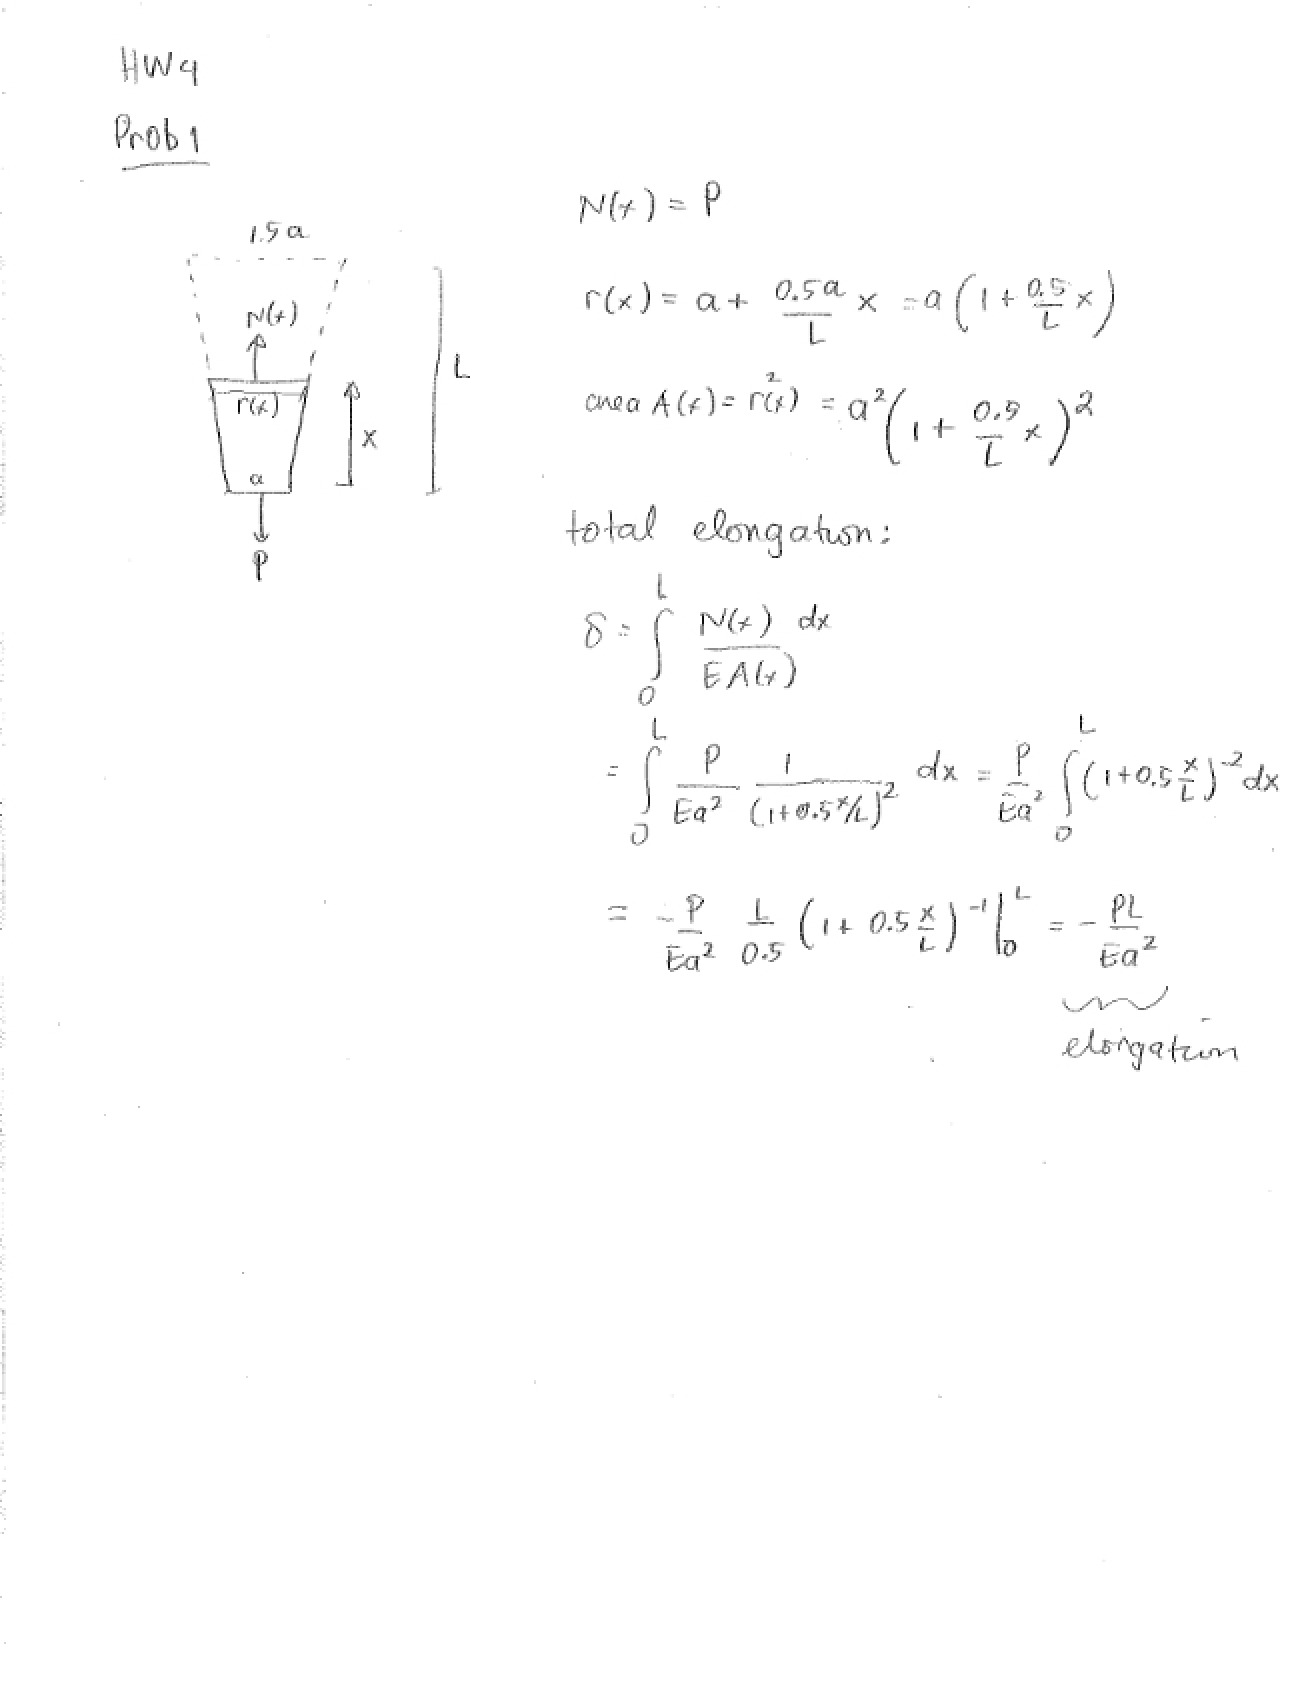 HW4
Prob 1
1.5a
N(x)
r(x)
a
P
x
L
N(x) = P
r(x) = a + 0.5a/L x = a(1 + 0.5/L x)
area A(x) = r²(x) = a²(1 + 0.5/L x)²
total elongation:
δ = ∫₀ᴸ N(x) dx / EA(x)
= ∫₀ᴸ P/Ea² 1/(1+0.5x/L)² dx = P/Ea² ∫₀ᴸ (1+0.5 x/L)⁻² dx
= -P/Ea² L/0.5 (1 + 0.5 x/L)⁻¹ |₀ᴸ = - PL/Ea²
elongation